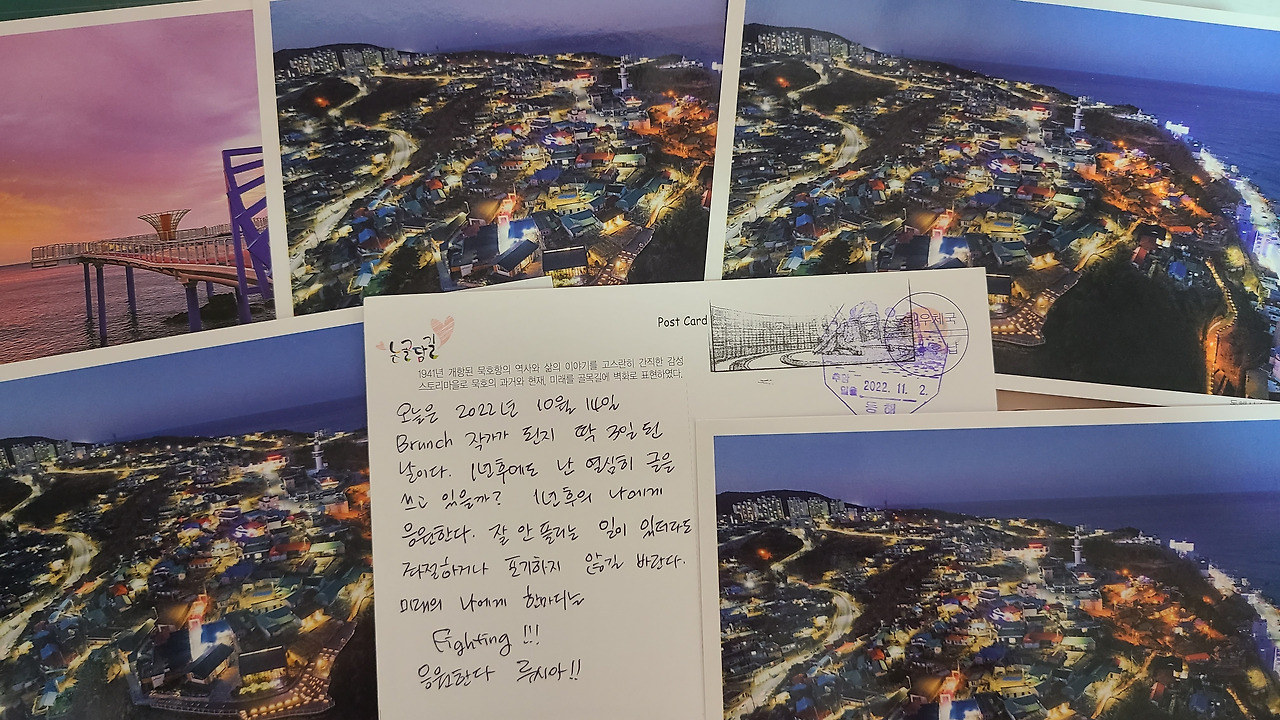 논골담길
1941년 개항된 묵호항의 역사와 삶의 이야기를 고스란히 간직한 감성
스토리마을로 묵호의 과거와 현재, 미래를 골목길에 벽화로 표현하였다.
Post Card
우체국
2022. 11. 2.
동해
오늘은 2022년 10월 14일
Brunch 작가가 된지 딱 3일 된
날이다. 1년후에도 난 열심히 글을
쓰고 있을까? 1년후의 나에게
응원한다. 잘 안 풀리는 일이 있더라도
좌절하거나 포기하지 않길 바란다.
미래의 나에게 한마디는
Fighting !!!
응원한다 루시아!!